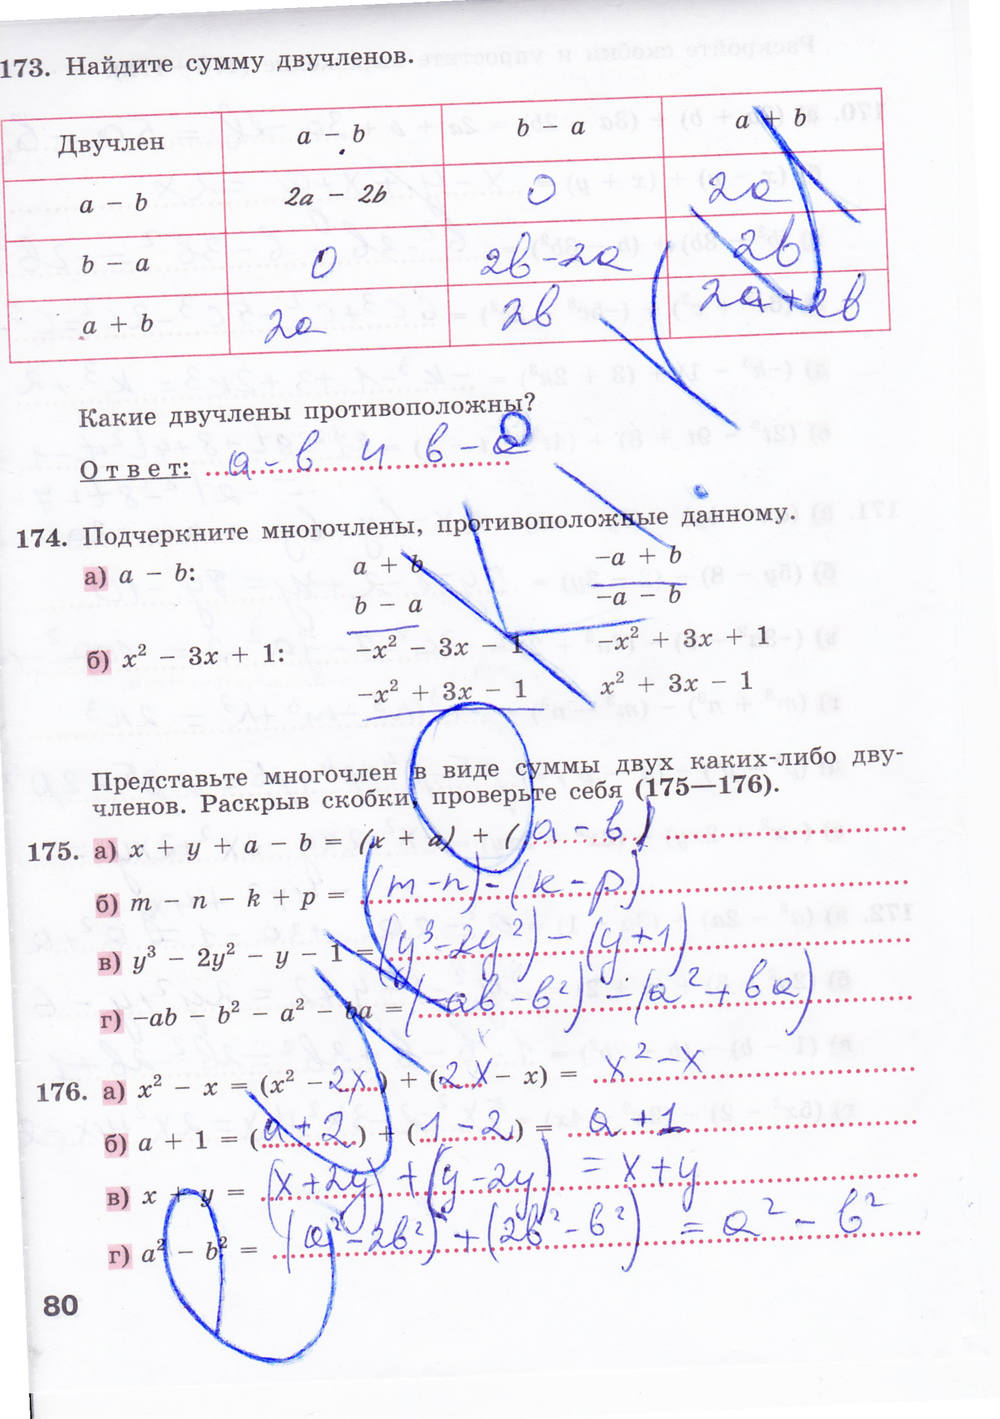 173. Найдите сумму двучленов.
Двучлен a − b b − a a + b
a − b 2a − 2b 0 2a
b − a 0 2b−2a 2b
a + b 2a 2b 2a+2b
Какие двучлены противоположны?
Ответ: a−b и b−a
174. Подчеркните многочлены, противоположные данному.
а) a − b: a + b −a + b
b − a −a − b
б) x² − 3x + 1: −x² − 3x − 1 −x² + 3x + 1
−x² + 3x − 1 x² + 3x − 1
Представьте многочлен в виде суммы двух каких-либо дву-
членов. Раскрыв скобки, проверьте себя (175—176).
175. а) x + y + a − b = (x + a) + (a − b)
б) m − n − k + p = (m−n)−(k−p)
в) y³ − 2y² − y − 1 = (y³−2y²)−(y+1)
г) −ab − b² − a² − ba = (−ab−b²)−(a²+ba)
176. а) x² − x = (x² − 2x) + (2x − x) = x²−x
б) a + 1 = (a+2) + (1−2) = a+1
в) x + y = (x+2y)+(y−2y) = x+y
г) a² − b² = (a²−2b²)+(2b²−b²) = a²−b²
80